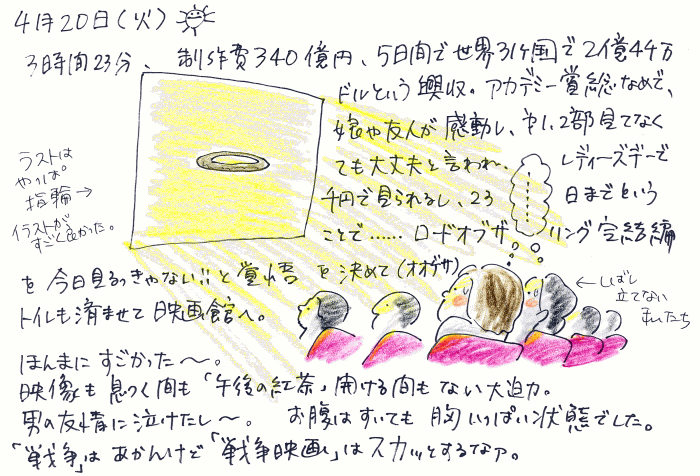 4月20日(火)
3時間23分、制作費340億円、5日間で世界31ケ国で2億44万
ドルという興収。アカデミー賞総なめで、
娘や友人が感動し、1、2部見てなく
ても大丈夫と言われ、レディーズデーで
千円で見られるし、23日までという
ことで……ロードオブザリング完結編
を今日見るっきゃない!!と覚悟を決めて(オオゲサ)
トイレも済ませて映画館へ。
ラストは
やっぱ。
指輪→
イラストが
すごく良かった。
←しばし
立てない
私たち
ほんまにすごかった〜。
映像も息つく間も「午後の紅茶」開ける間もない大迫力。
男の友情に泣けたし〜。お腹はすいても胸いっぱい状態でした。
「戦争」はあかんけど「戦争映画」はスカッとするなァ。